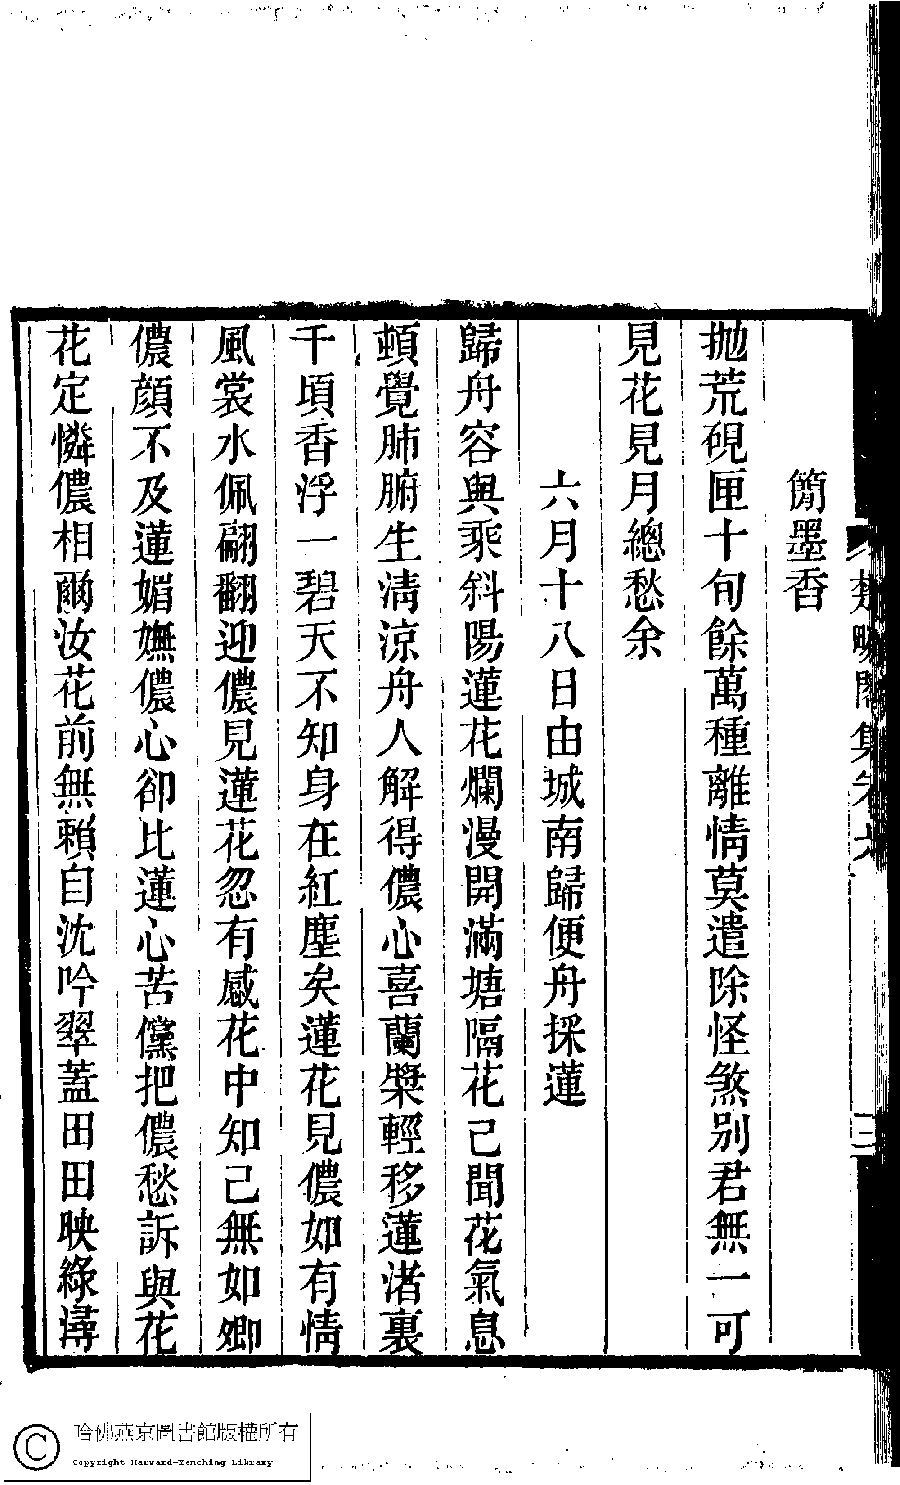 簡墨香
拋荒硯匣十旬餘萬種離情莫遣除怪煞別君無一可
見花見月總愁余
六月十八日由城南歸便舟採蓮
歸舟容與乘斜陽蓮花爛漫開滿塘隔花已聞花氣息
頓覺肺腑生淸涼舟人解得儂心喜蘭槳輕移蓮渚裏
千頃香浮一碧天不知身在紅塵矣蓮花見儂如有情
風裳水佩翩翻迎儂見蓮花忽有感花中知己無如卿
儂顏不及蓮媚嫵儂心卻比蓮心苦儻把儂愁訴與花
花定憐儂相爾汝花前無賴自沈吟翠蓋田田映綠潯
哈佛燕京圖書館版權所有
Copyright Harvard-Yenching Library